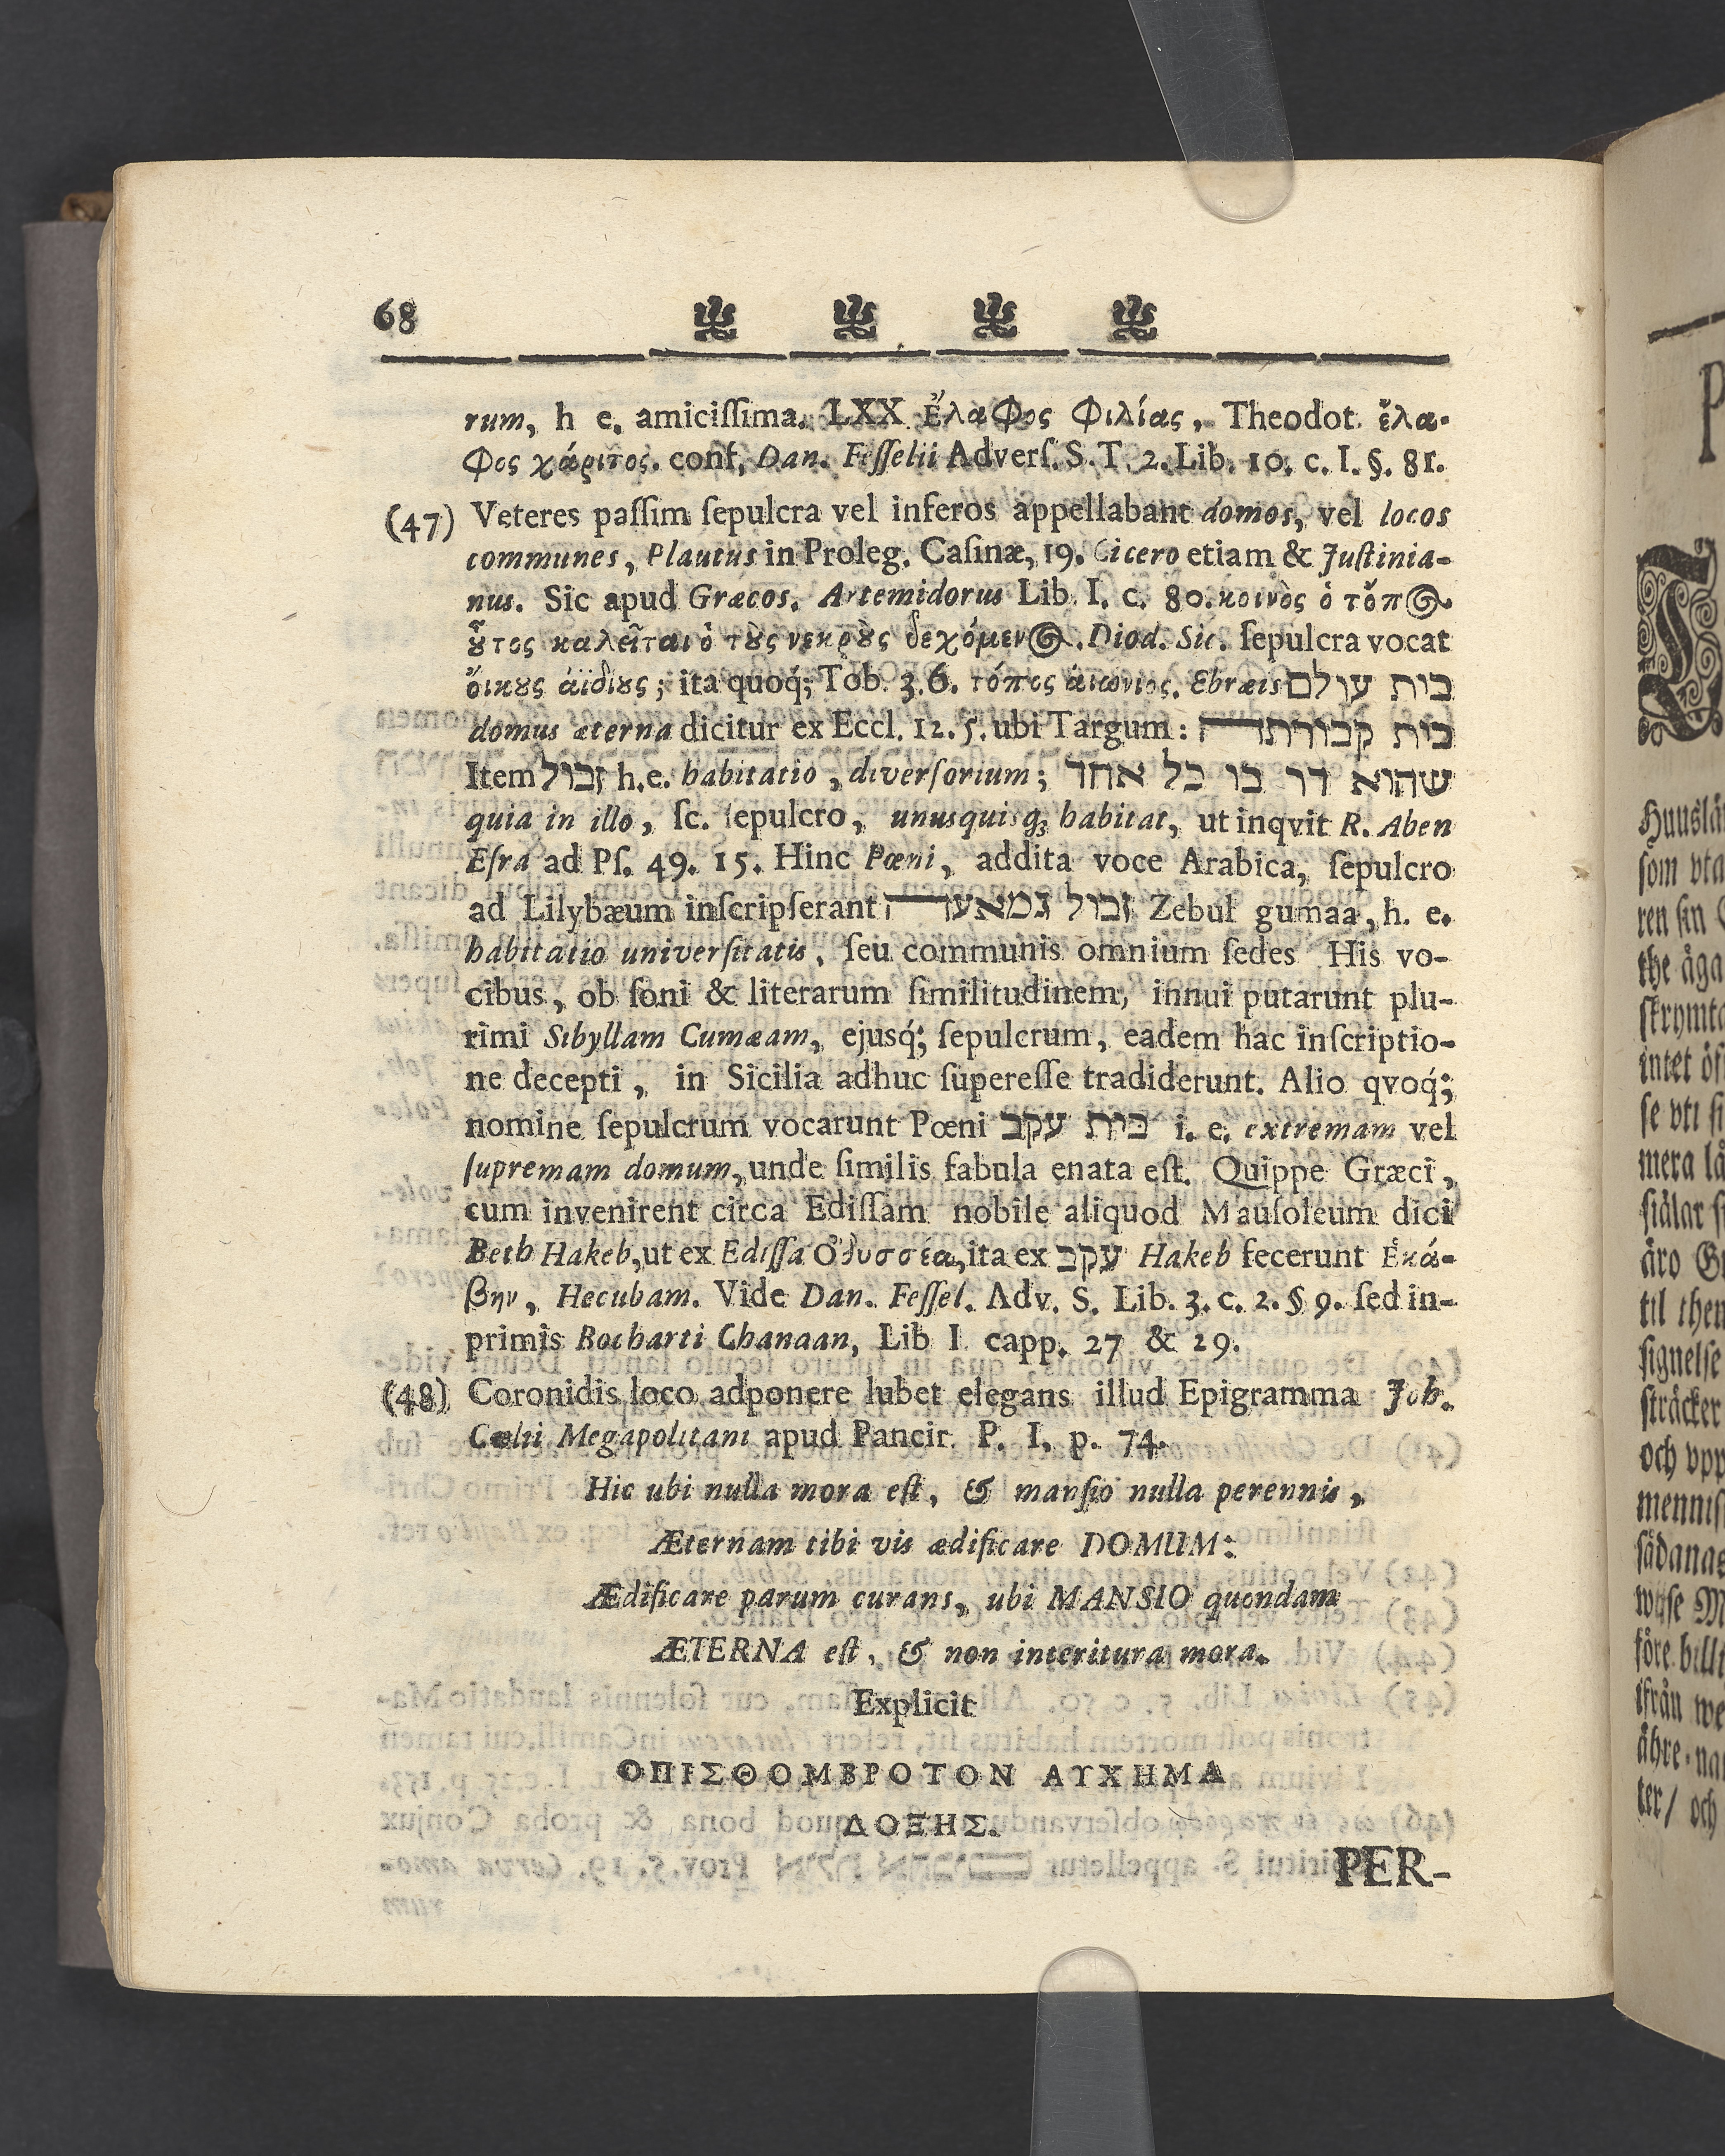 68
rum, h e. amiciſſima. LXX ἔλαφος φιλίας, Theodot. ἔλα-
φος χάριτος. conf. Dan. Feſſelii Adverſ. S. T. 2. Lib. 10. c. I. §. 81.
(47) Veteres paſſim ſepulcra vel inferos appellabant domos, vel locos
communes, Plautus in Proleg. Caſinæ, 19. Cicero etiam & Juſtinia-
nus. Sic apud Græcos. Artemidorus Lib. I. c. 80. κοινὸς ὁ τόπος
ȣ̃τος καλεῖται ὁ τȣ̀ς νεκρȣ̀ς δεχόμενος. Diod. Sic. ſepulcra vocat
ὄικȣς ἀϊδίȣς; ita quoq́; Tob. 3. 6. τόπος ἀιώνιος. Ebræis בית עולם
domus æterna dicitur ex Eccl. 12. 5. ubi Targum: בית קבורתה
Item זבול h.e. habitatio, diverſorium; שהוא דר בו כל אחד
quia in illo, ſc. ſepulcro, unusquisq; habitat, ut inqvit R. Aben
Eſra ad Pſ. 49. 15. Hinc Pœni, addita voce Arabica, ſepulcro
ad Lilybæum inſcripſerant זבול גמאעה Zebul gumaa, h. e.
habitatio univerſitatis, ſeu communis omnium ſedes His vo-
cibus, ob ſoni & literarum ſimilitudinem, innui putarunt plu-
rimi Sibyllam Cumæam, ejusq́; ſepulcrum, eadem hac inſcriptio-
ne decepti, in Sicilia adhuc ſupereſſe tradiderunt. Alio qvoq́;
nomine ſepulcrum vocarunt Pœni בית עקב i. e. extremam vel
ſupremam domum, unde ſimilis fabula enata eſt. Quippe Græci,
cum invenirent circa Ediſſam nobile aliquod Mauſoleum dici
Beth Hakeb, ut ex Ediſſa Ὀδυσσέα, ita ex עקב Hakeb fecerunt Ἑκά-
βην, Hecubam. Vide Dan. Feſſel. Adv. S. Lib. 3. c. 2. § 9. ſed in-
primis Bocharti Chanaan, Lib I. capp. 27 & 29.
(48) Coronidis loco adponere lubet elegans illud Epigramma Joh.
Celii Megapolitani apud Pancir. P. I. p. 74.
Hic ubi nulla mora eſt, & manſio nulla perennis,
Æternam tibi vis ædificare DOMUM:
Ædificare parum curans, ubi MANSIO quondam
ÆTERNA eſt, & non interitura mora.
Explicit
ΟΠΙΣΘΟΜΒΡΟΤΟΝ ΑΥΧΗΜΑ
ΔΟΞΗΣ.
PER-